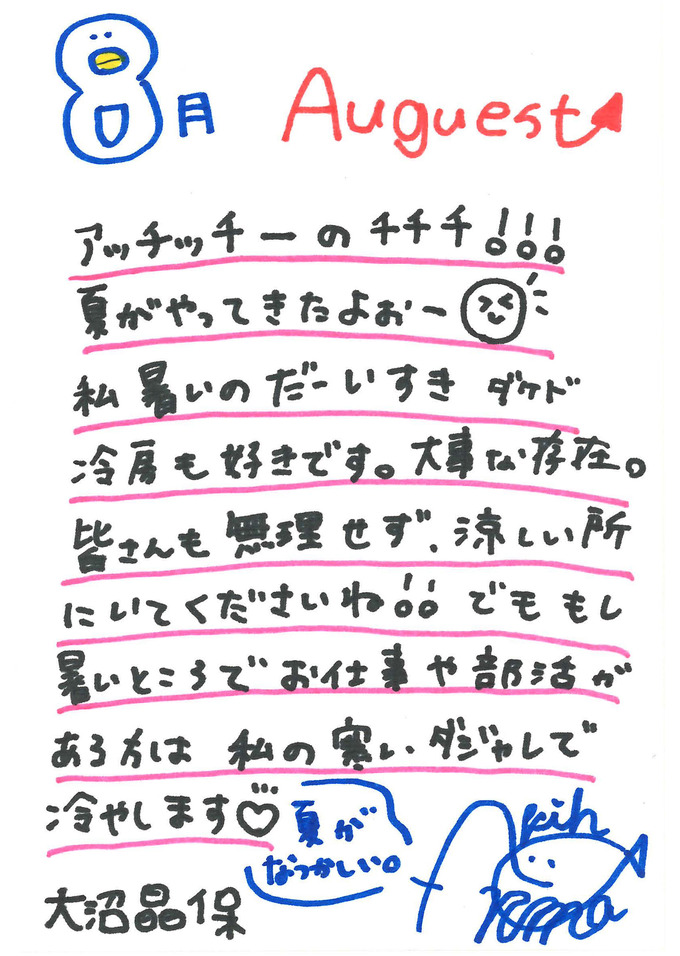 8月 Auguest
アッチッチーのチチチ!!!
夏がやってきたよおー
私 暑いの だーいすき ダケド
冷房も好きです。大事な存在。
皆さんも無理せず、涼しい所
にいてくださいね!! でモ もし
暑いところでお仕事や部活が
ある方は 私の寒いダジャレで
冷やします♡
夏が
なつかしい。
大沼晶保